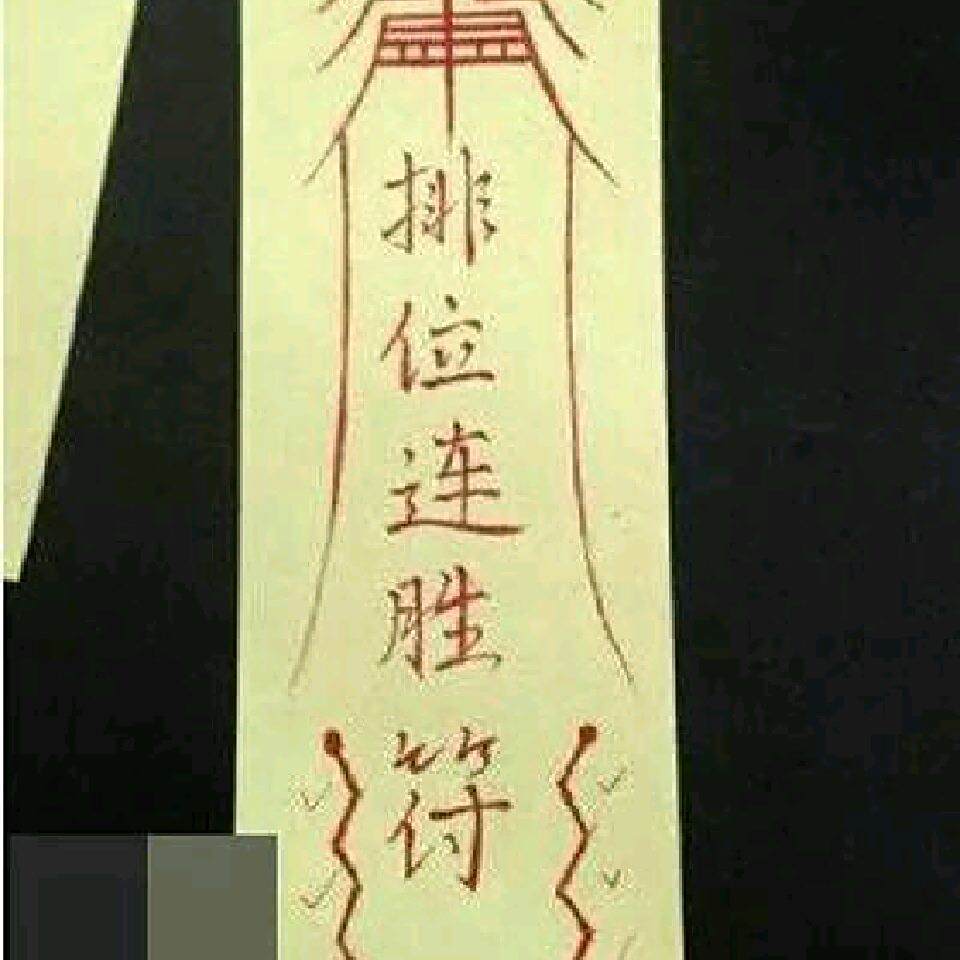 排位连胜符